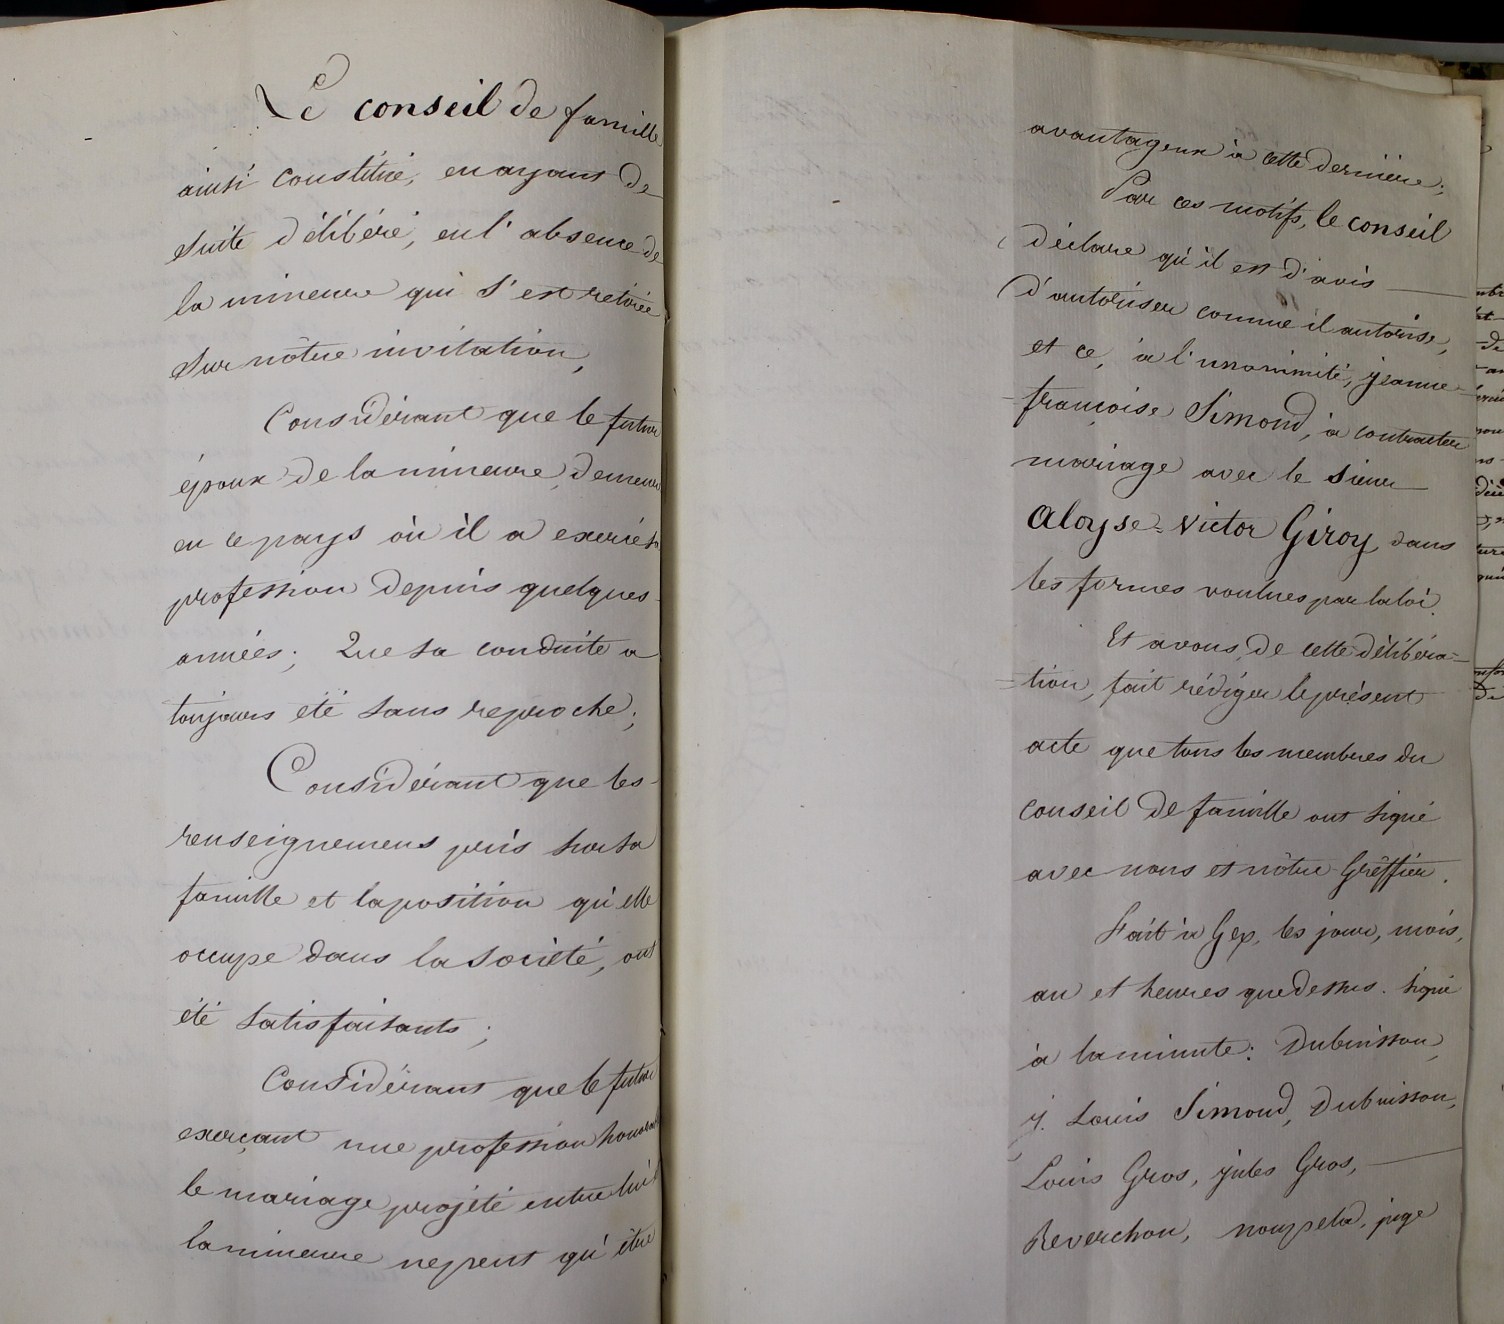 Le conseil de famille
ainsi constitué, en ayant de
suite délibéré, en l'absence de
la mineure qui s'est retirée
sur nôtre invitation,
Considérant que le futur
époux de la mineure, demeure
en ce pays où il a exercé sa
profession depuis quelques
années; Que sa conduite a
toujours été sans reproche;
Considérant que les
renseignemens pris sur sa
famille et la position qu'elle
occupe dans la société, ont
été satisfaisants;
Considérant que le futur
exerçant une profession
le mariage projeté entre lui &
la mineure ne peut qu'être
avantageux à cette dernière;
Par ces motifs, le conseil
déclare qu'il est d'avis
d'autoriser comme il autorise,
et ce, à l'unanimité, jeanne
françoise Simond, à contracter
mariage avec le sieur
Aloyse-Victor Giroy dans
les formes voulues par la loi.
Et avons de cette délibéra=
=tion, fait rédiger le présent
acte que tous les membres du
conseil de famille ont signé
avec nous et nôtre Gréffier.
Fait à Gex, les jour, mois,
an et heures que dessus. signé
à la minute: Dubuisson,
j. Louis Simond, Dubuisson,
Louis Gros, jules Gros,
Reverchon, juge